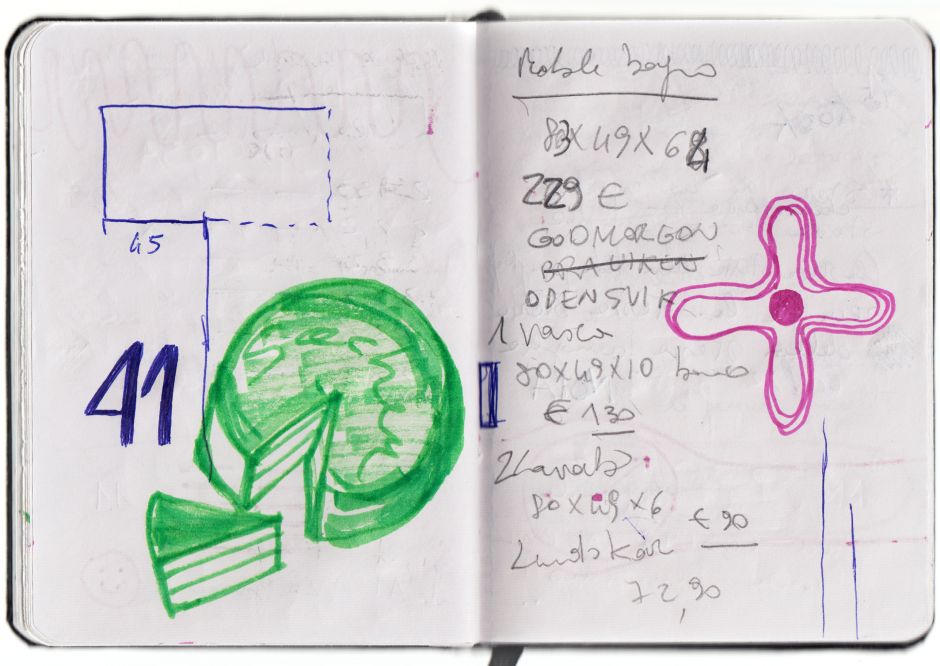 45
41
Sacher
Mobile bagno
83 x 49 x 64
229 €
GODMORGON
BRAVIKEN
ODENSVIK
1 vasca
80 x 49 x 10
€ 130
80 x 49 x 6
€ 90
Lundskär
72,90